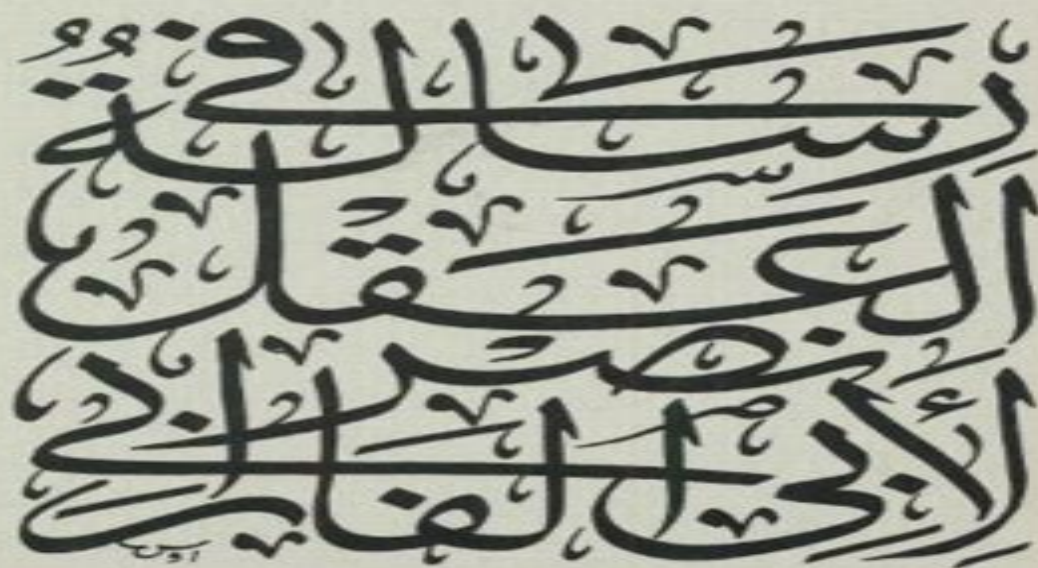 رِسَالَةٌ فِي
العَقْل
لِأَبِي نَصْر
الفَارَابِي